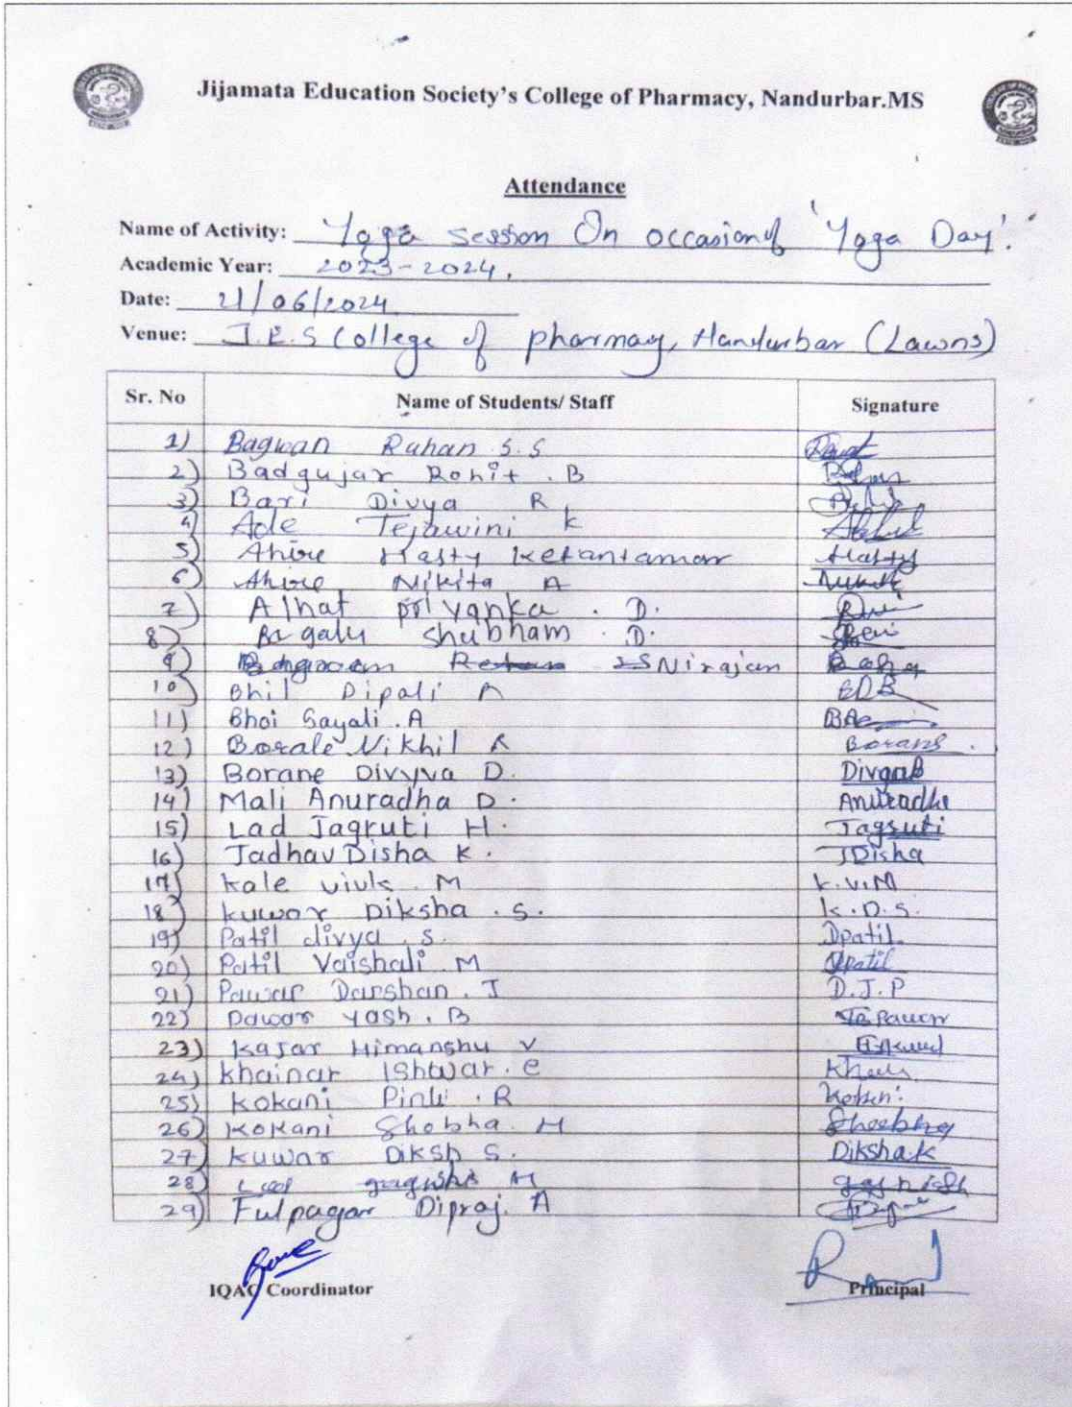 Jijamata Education Society's College of Pharmacy, Nandurbar.MS
Attendance
Name of Activity: Yoga session On occasion of 'Yoga Day'.
Academic Year: 2023-2024.
Date: 21/06/2024
Venue: J.E.S College of pharmacy, Nandurbar (Lawns)
Sr. No Name of Students/ Staff Signature
1) Bagwan Rahan S.S
2) Badgujar Rohit . B
3) Bari Divya R
4) Ade Tejawini K
5) Ahire Hasty Ketantamar Hasty
6) Ahire Nikita A
7) Alhat priyanka . D.
8) Bagaly Shubham . D.
9) Nirajan
10) Bhil Dipali A EDB
11) Bhoi Sayali .A
12) Borale Nikhil R Borans.
13) Borane Divyva D. Divgab
14) Mali Anuradha D. Anuradha
15) Lad Jagruti H. Jagruti
16) Jadhav Disha K. JDisha
17) Kale vivk . M K.V.M
18) Kuwar Diksha . S. K.D.S.
19) Patil divya . S. Dpatil
20) Patil Vaishali . M Vpatil
21) Pawar Darshan . J D.J.P
22) Pawar Yash . B
23) Kasar Himanshu V
24) Khainar Ishwar. e
25) Kokani Pinki . R
26) Kokani Shobha. M Shobha
27) Kuwar Diksh S. Diksha.k
28)
29) Fulpagar Dipraj. A
IQAC Coordinator Principal